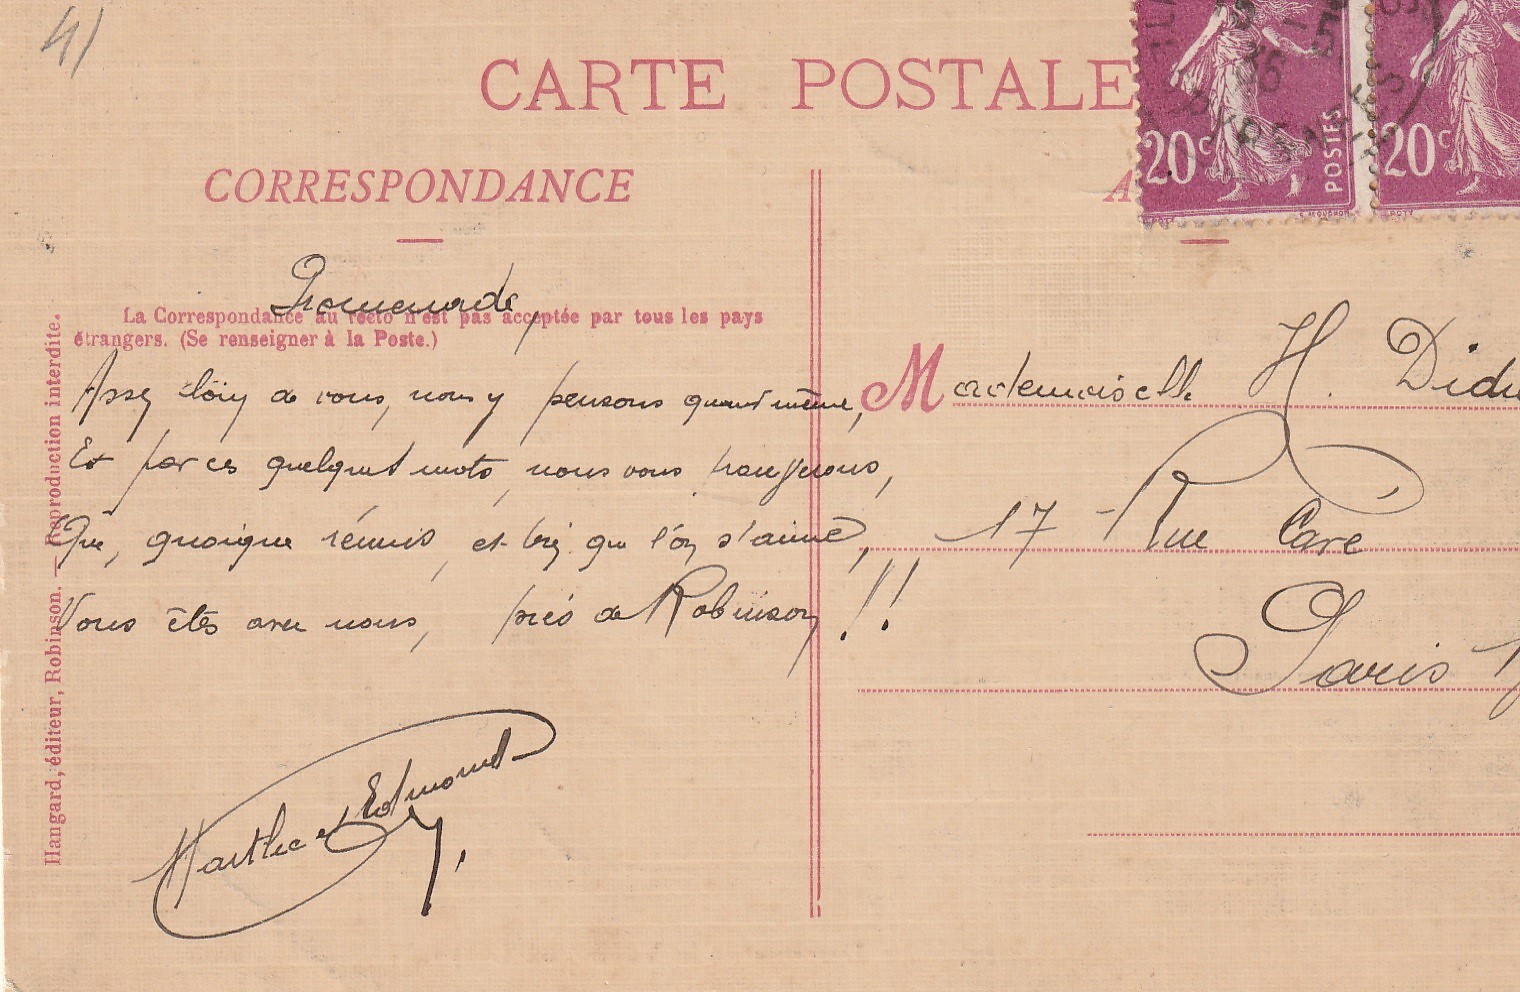 41
CARTE POSTALE
CORRESPONDANCE
A
20c POSTES
20c
36
PYRENEES
Promenade,
La Correspondance au recto n'est pas acceptée par tous les pays
étrangers. (Se renseigner à la Poste.)
Assez loin de vous, nous y pensons quand même,
Et par ces quelques mots, nous vous
Que, quoique réunis, et bien que l'on s'aime,
Vous êtes avec nous, près de Robinson !!
Marthe et Edmond
Mademoiselle H. Didi
17 Rue Caré
Paris 1
Hangard, éditeur, Robinson. — Reproduction interdite.